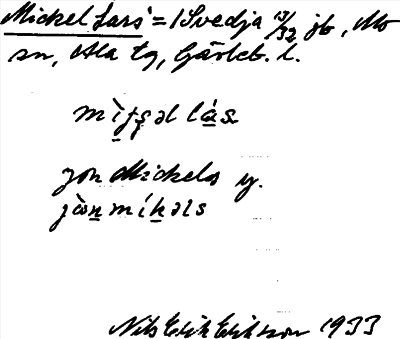 Mickel Lars' = /Svedja 13/32 jb, Mo
sn, Ala tg, Gävleb. l.
mìţşəl lás
Jon Mickels y.
jòn míkəls
Nils Erik Eriksson 1933